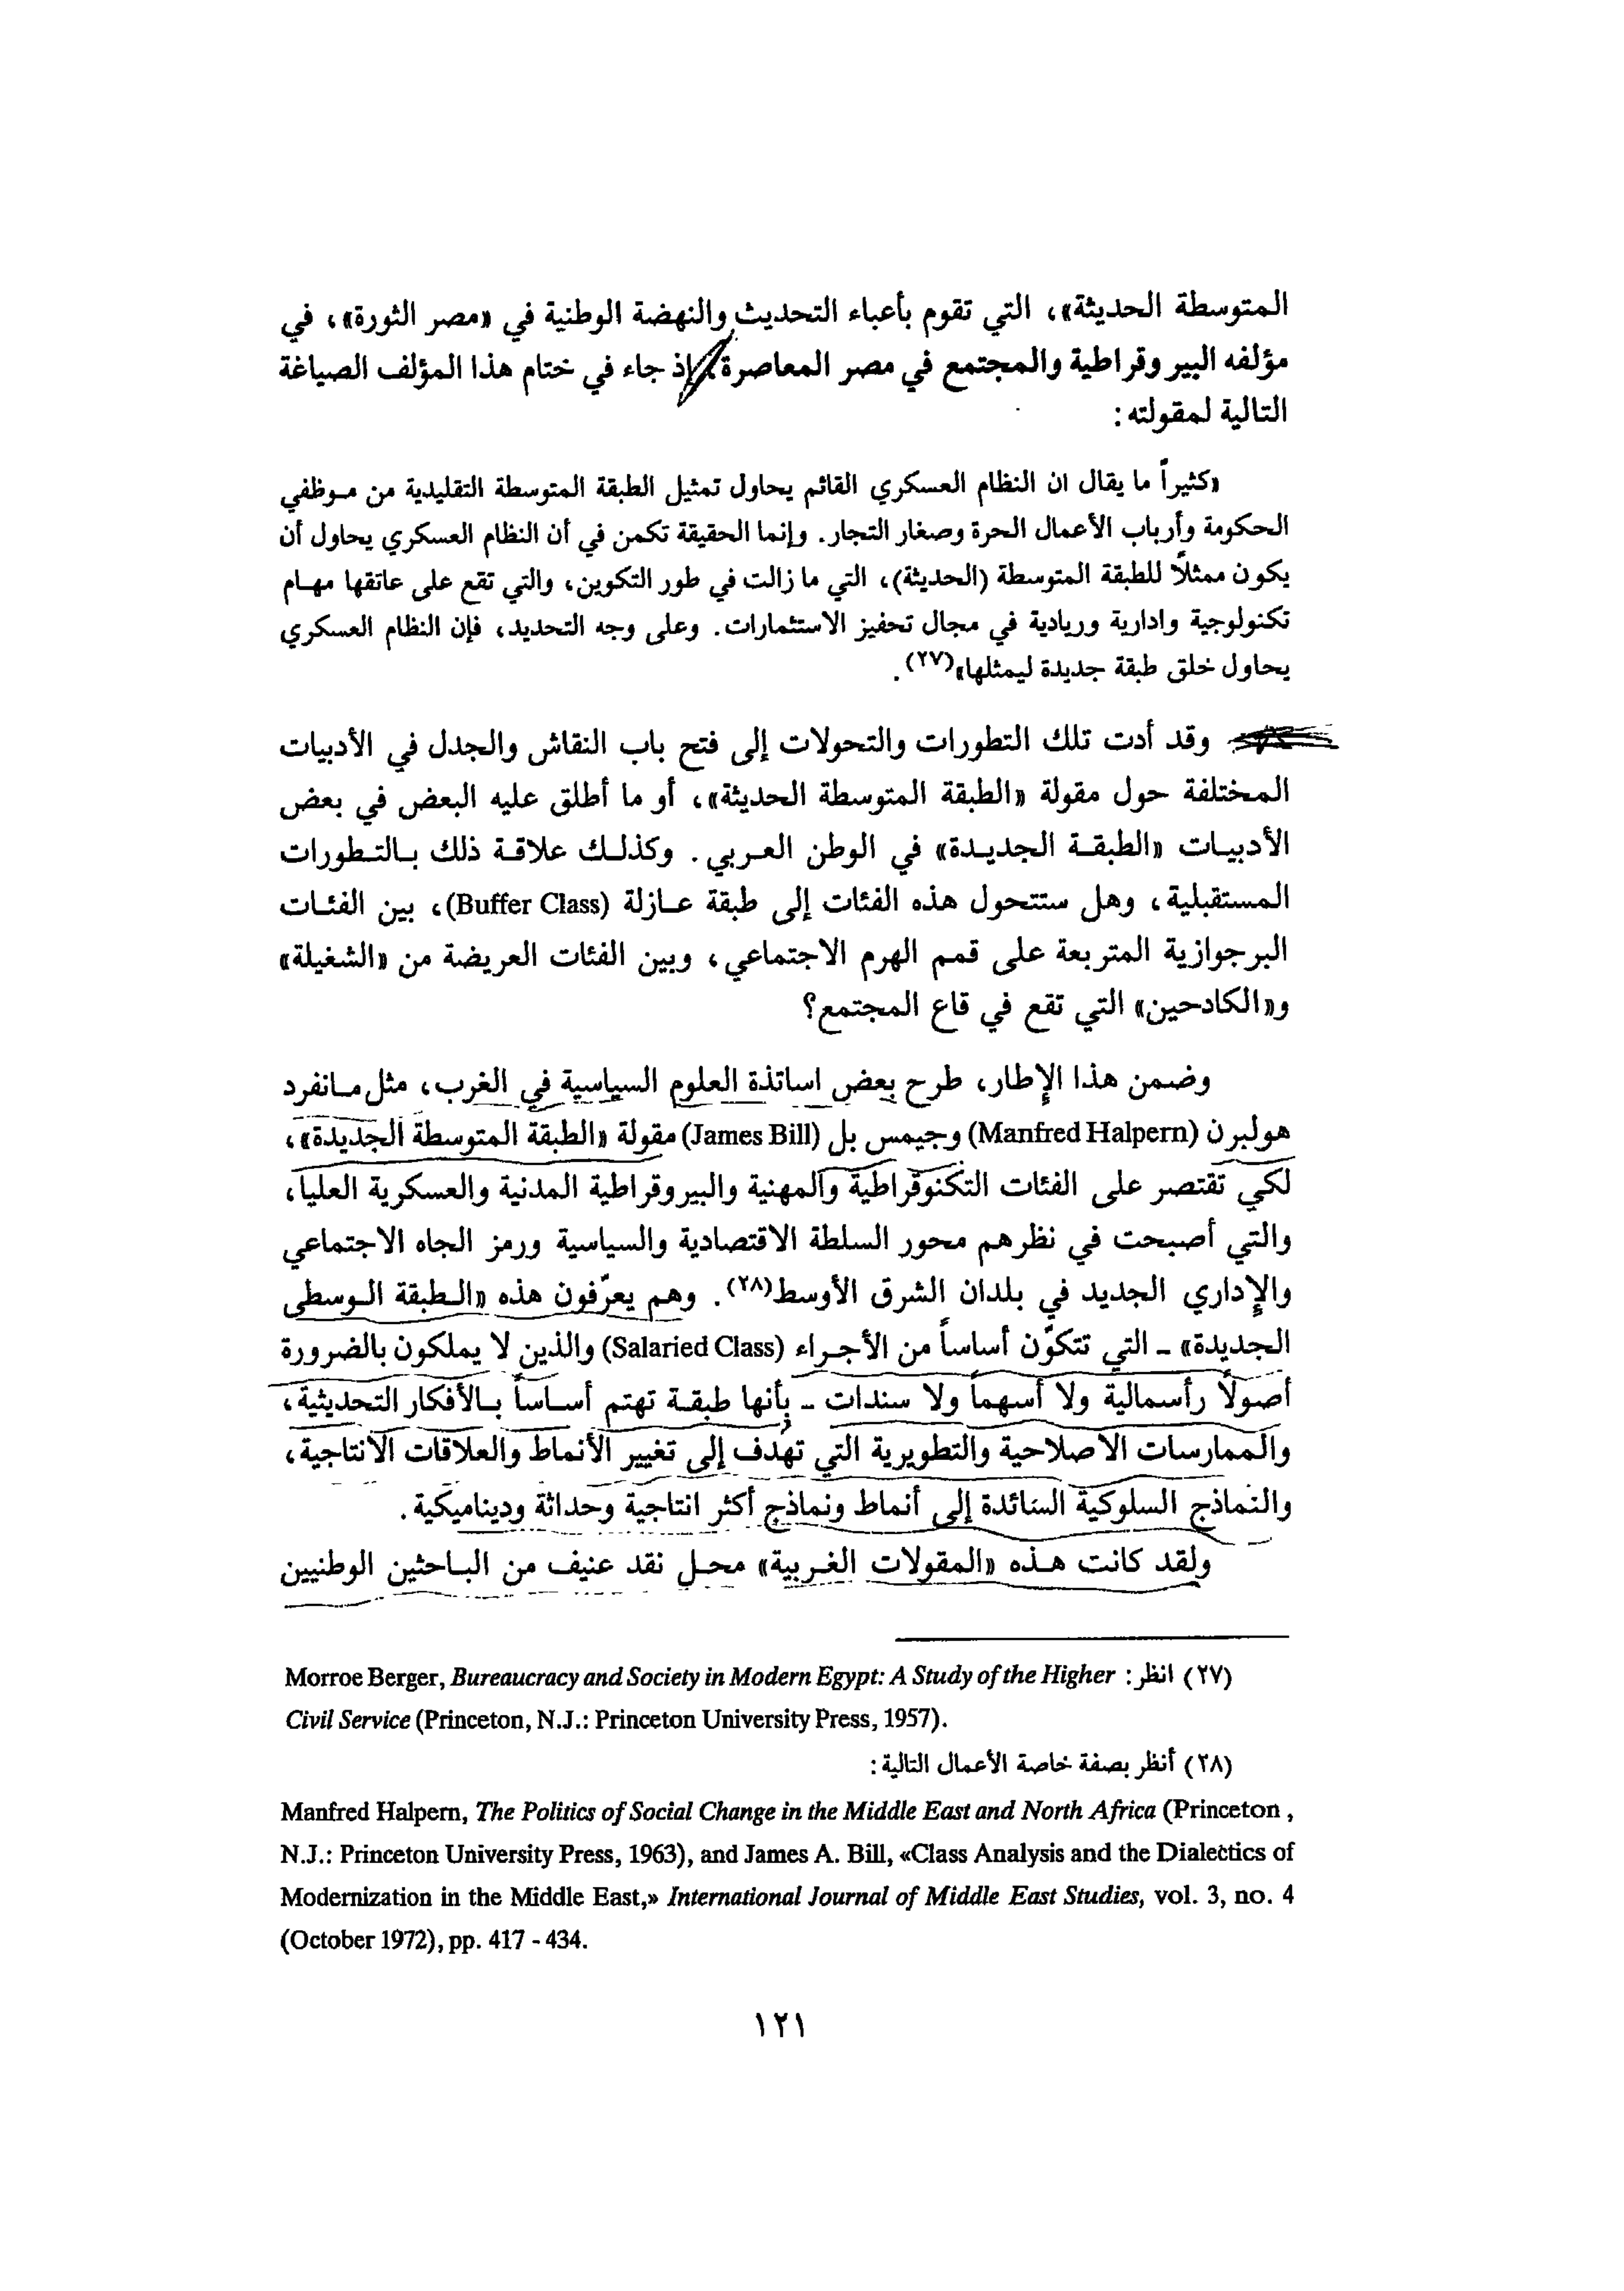 المتوسطة الحديثة»، التي تقوم بأعباء التحديث والنهضة الوطنية في «مصر الثورة»، في
مؤلفه البيروقراطية والمجتمع في مصر المعاصرة، إذ جاء في ختام هذا المؤلف الصياغة
التالية لمقولته:
«كثيراً ما يقال ان النظام العسكري القائم يحاول تمثيل الطبقة المتوسطة التقليدية من موظفي
الحكومة وأرباب الأعمال الحرة وصغار التجار. وإنما الحقيقة تكمن في أن النظام العسكري يحاول أن
يكون ممثلاً للطبقة المتوسطة (الحديثة)، التي ما زالت في طور التكوين، والتي تقع على عاتقها مهام
تكنولوجية وادارية وريادية في مجال تحفيز الاستثمارات. وعلى وجه التحديد، فإن النظام العسكري
يحاول خلق طبقة جديدة ليمثلها»(٢٧).
وقد أدت تلك التطورات والتحولات إلى فتح باب النقاش والجدل في الأدبيات
المختلفة حول مقولة «الطبقة المتوسطة الحديثة»، أو ما أطلق عليه البعض في بعض
الأدبيات «الطبقة الجديدة» في الوطن العربي. وكذلك علاقة ذلك بالتطورات
المستقبلية، وهل ستتحول هذه الفئات إلى طبقة عازلة (Buffer Class)، بين الفئات
البرجوازية المتربعة على قمم الهرم الاجتماعي، وبين الفئات العريضة من «الشغيلة»
و«الكادحين» التي تقع في قاع المجتمع؟
وضمن هذا الإطار، طرح بعض اساتذة العلوم السياسية في الغرب، مثل مانفرد
هولبرن (Manfred Halpern) وجيمس بل (James Bill) مقولة «الطبقة المتوسطة الجديدة»،
لكي تقتصر على الفئات التكنوقراطية والمهنية والبيروقراطية المدنية والعسكرية العليا،
والتي أصبحت في نظرهم محور السلطة الاقتصادية والسياسية ورمز الجاه الاجتماعي
والإداري الجديد في بلدان الشرق الأوسط(٢٨). وهم يعرّفون هذه «الطبقة الوسطى
الجديدة» - التي تتكوّن أساساً من الأجراء (Salaried Class) والذين لا يملكون بالضرورة
أصولاً رأسمالية ولا أسهماً ولا سندات - بأنها طبقة تهتم أساساً بالأفكار التحديثية،
والممارسات الاصلاحية والتطويرية التي تهدف إلى تغيير الأنماط والعلاقات الانتاجية،
والنماذج السلوكية السائدة إلى أنماط ونماذج أكثر انتاجية وحداثة وديناميكية.
ولقد كانت هذه «المقولات الغربية» محل نقد عنيف من الباحثين الوطنيين
(٢٧) انظر: Morroe Berger, Bureaucracy and Society in Modern Egypt: A Study of the Higher
Civil Service (Princeton, N.J.: Princeton University Press, 1957).
(٢٨) أنظر بصفة خاصة الأعمال التالية:
Manfred Halpern, The Politics of Social Change in the Middle East and North Africa (Princeton ,
N.J.: Princeton University Press, 1963), and James A. Bill, «Class Analysis and the Dialectics of
Modernization in the Middle East,» International Journal of Middle East Studies, vol. 3, no. 4
(October 1972), pp. 417 - 434.
١٢١